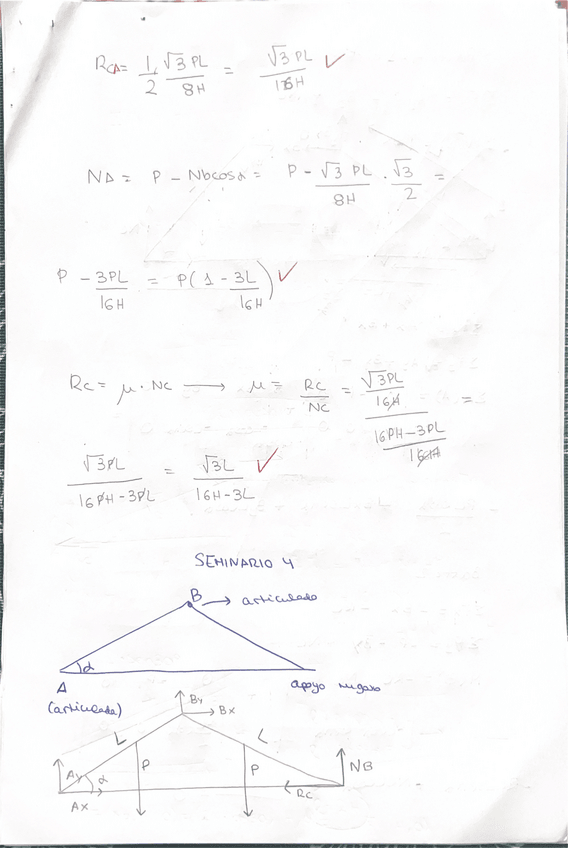 RCA = 1/2 √3 PL / 8H = √3 PL / 16H ✓
NA = P - Nb cosα = P - √3 PL / 8H · √3 / 2 =
P - 3PL / 16H = P(1 - 3L / 16H) ✓
Rc = μ · Nc → μ = Rc / Nc = (√3PL / 16H) / (16PH-3PL / 16H) =
√3PL / 16PH-3PL = √3L / 16H-3L ✓
SEMINARIO 4
B → articulado
α
A apoyo rugoso
(articulada)
By
Bx
L L
Ay α P P NB
Ax Rc